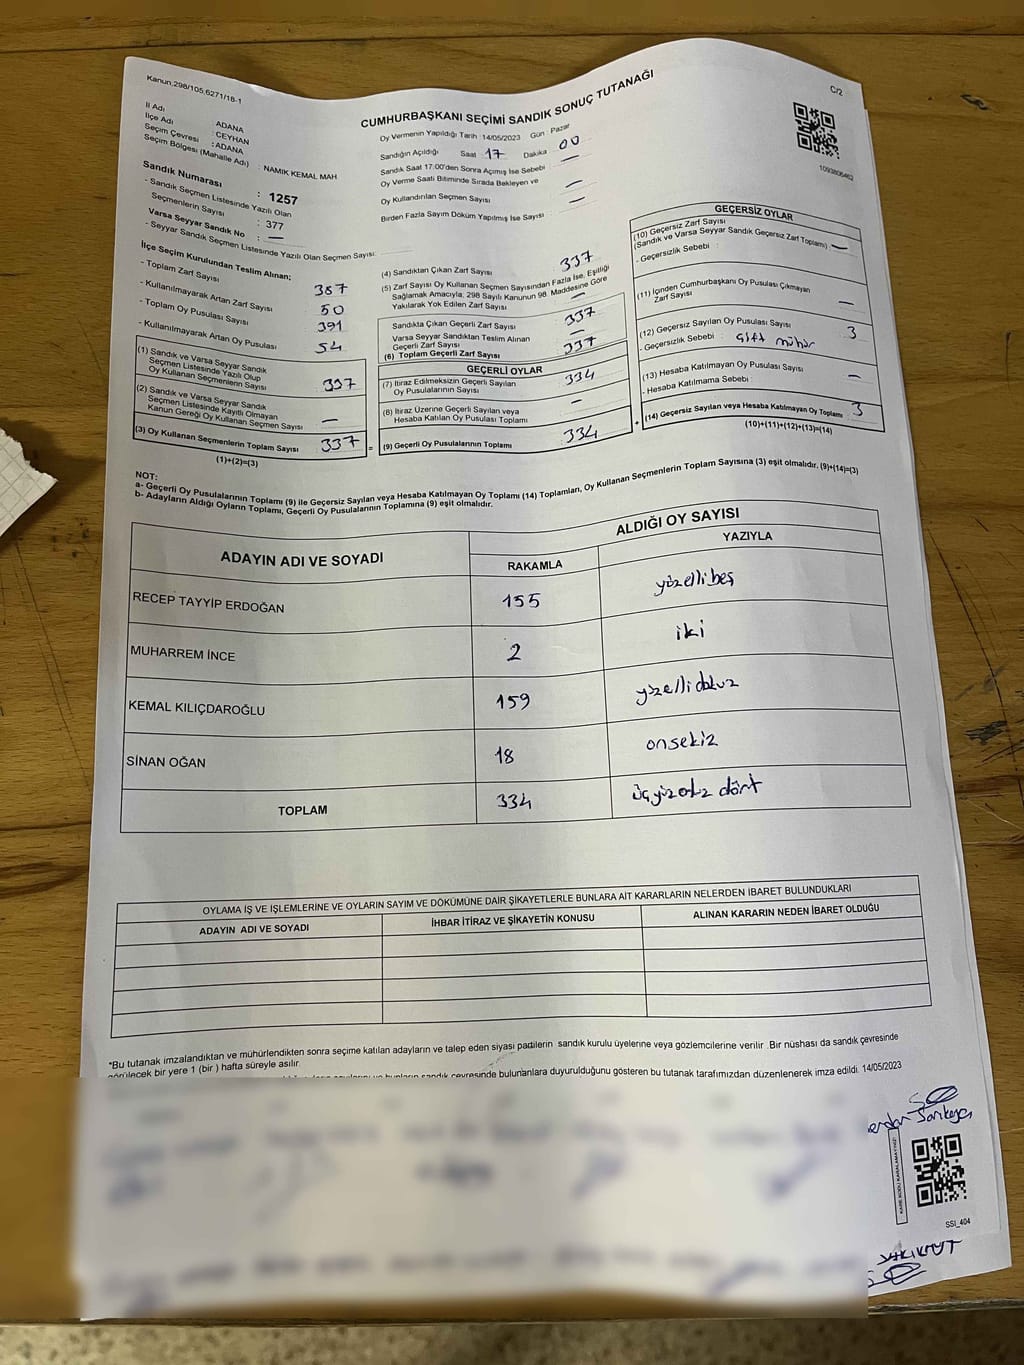 Kanun.298/105,6271/18-1
C/2
CUMHURBAŞKANI SEÇİMİ SANDIK SONUÇ TUTANAĞI
İl Adı : ADANA
İlçe Adı : CEYHAN
Seçim Çevresi : ADANA
Seçim Bölgesi (Mahalle Adı) : NAMIK KEMAL MAH
Oy Vermenin Yapıldığı Tarih 14/05/2023 Gün : Pazar
Sandığın Açıldığı Saat 17 Dakika 00
Sandık Saat 17:00'den Sonra Açımış İse Sebebi —
Oy Verme Saati Bitiminde Sırada Bekleyen ve
Oy Kullandırılan Seçmen Sayısı —
Birden Fazla Sayım Döküm Yapılmış İse Sayısı —
1093806462
Sandık Numarası : 1257
- Sandık Seçmen Listesinde Yazılı Olan
Seçmenlerin Sayısı : 377
Varsa Seyyar Sandık No : —
- Seyyar Sandık Seçmen Listesinde Yazılı Olan Seçmen Sayısı:
İlçe Seçim Kurulundan Teslim Alınan;
- Toplam Zarf Sayısı 387
- Kullanılmayarak Artan Zarf Sayısı 50
- Toplam Oy Pusulası Sayısı 391
- Kullanılmayarak Artan Oy Pusulası 54
(1) Sandık ve Varsa Seyyar Sandık
Seçmen Listesinde Yazılı Olup
Oy Kullanan Seçmenlerin Sayısı 337
(2) Sandık ve Varsa Seyyar Sandık
Seçmen Listesinde Kayıtlı Olmayan
Kanun Gereği Oy Kullanan Seçmen Sayısı —
(3) Oy Kullanan Seçmenlerin Toplam Sayısı 337 =
(1)+(2)=(3)
(4) Sandıktan Çıkan Zarf Sayısı 337
(5) Zarf Sayısı Oy Kullanan Seçmen Sayısından Fazla İse, Eşitliği
Sağlamak Amacıyla, 298 Sayılı Kanunun 98. Maddesine Göre
Yakılarak Yok Edilen Zarf Sayısı —
Sandıkta Çıkan Geçerli Zarf Sayısı 337
Varsa Seyyar Sandıktan Teslim Alınan
Geçerli Zarf Sayısı —
(6) Toplam Geçerli Zarf Sayısı 337
GEÇERLİ OYLAR
(7) İtiraz Edilmeksizin Geçerli Sayılan
Oy Pusulalarının Sayısı 334
(8) İtiraz Üzerine Geçerli Sayılan veya
Hesaba Katılan Oy Pusulası Toplamı —
(9) Geçerli Oy Pusulalarının Toplamı 334 +
GEÇERSİZ OYLAR
(10) Geçersiz Zarf Sayısı
(Sandık ve Varsa Seyyar Sandık Geçersiz Zarf Toplamı) —
- Geçersizlik Sebebi :
(11) İçinden Cumhurbaşkanı Oy Pusulası Çıkmayan
Zarf Sayısı —
(12) Geçersiz Sayılan Oy Pusulası Sayısı 3
- Geçersizlik Sebebi : Çift mühür
(13) Hesaba Katılmayan Oy Pusulası Sayısı —
- Hesaba Katılmama Sebebi :
(14) Geçersiz Sayılan veya Hesaba Katılmayan Oy Toplamı 3
(10)+(11)+(12)+(13)=(14)
NOT:
a- Geçerli Oy Pusulalarının Toplamı (9) ile Geçersiz Sayılan veya Hesaba Katılmayan Oy Toplamı (14) Toplamları, Oy Kullanan Seçmenlerin Toplam Sayısına (3) eşit olmalıdır. (9)+(14)=(3)
b- Adayların Aldığı Oyların Toplamı, Geçerli Oy Pusulalarının Toplamına (9) eşit olmalıdır.
ADAYIN ADI VE SOYADI ALDIĞI OY SAYISI
RAKAMLA YAZIYLA
RECEP TAYYİP ERDOĞAN 155 yüzellibeş
MUHARREM İNCE 2 iki
KEMAL KILIÇDAROĞLU 159 yüzellidokuz
SİNAN OĞAN 18 onsekiz
TOPLAM 334 üçyüzotuz dört
OYLAMA İŞ VE İŞLEMLERİNE VE OYLARIN SAYIM VE DÖKÜMÜNE DAİR ŞİKAYETLERLE BUNLARA AİT KARARLARIN NELERDEN İBARET BULUNDUKLARI
ADAYIN ADI VE SOYADI İHBAR İTİRAZ VE ŞİKAYETİN KONUSU ALINAN KARARIN NEDEN İBARET OLDUĞU
*Bu tutanak imzalandıktan ve mühürlendikten sonra seçime katılan adayların ve talep eden siyasi partilerin sandık kurulu üyelerine veya gözlemcilerine verilir .Bir nüshası da sandık çevresinde
görülecek bir yere 1 (bir ) hafta süreyle asılır.
sandık çevresinde bulunanlara duyurulduğunu gösteren bu tutanak tarafımızdan düzenlenerek imza edildi. 14/05/2023
KARE KODU KARALAMAYINIZ!
SSI_404